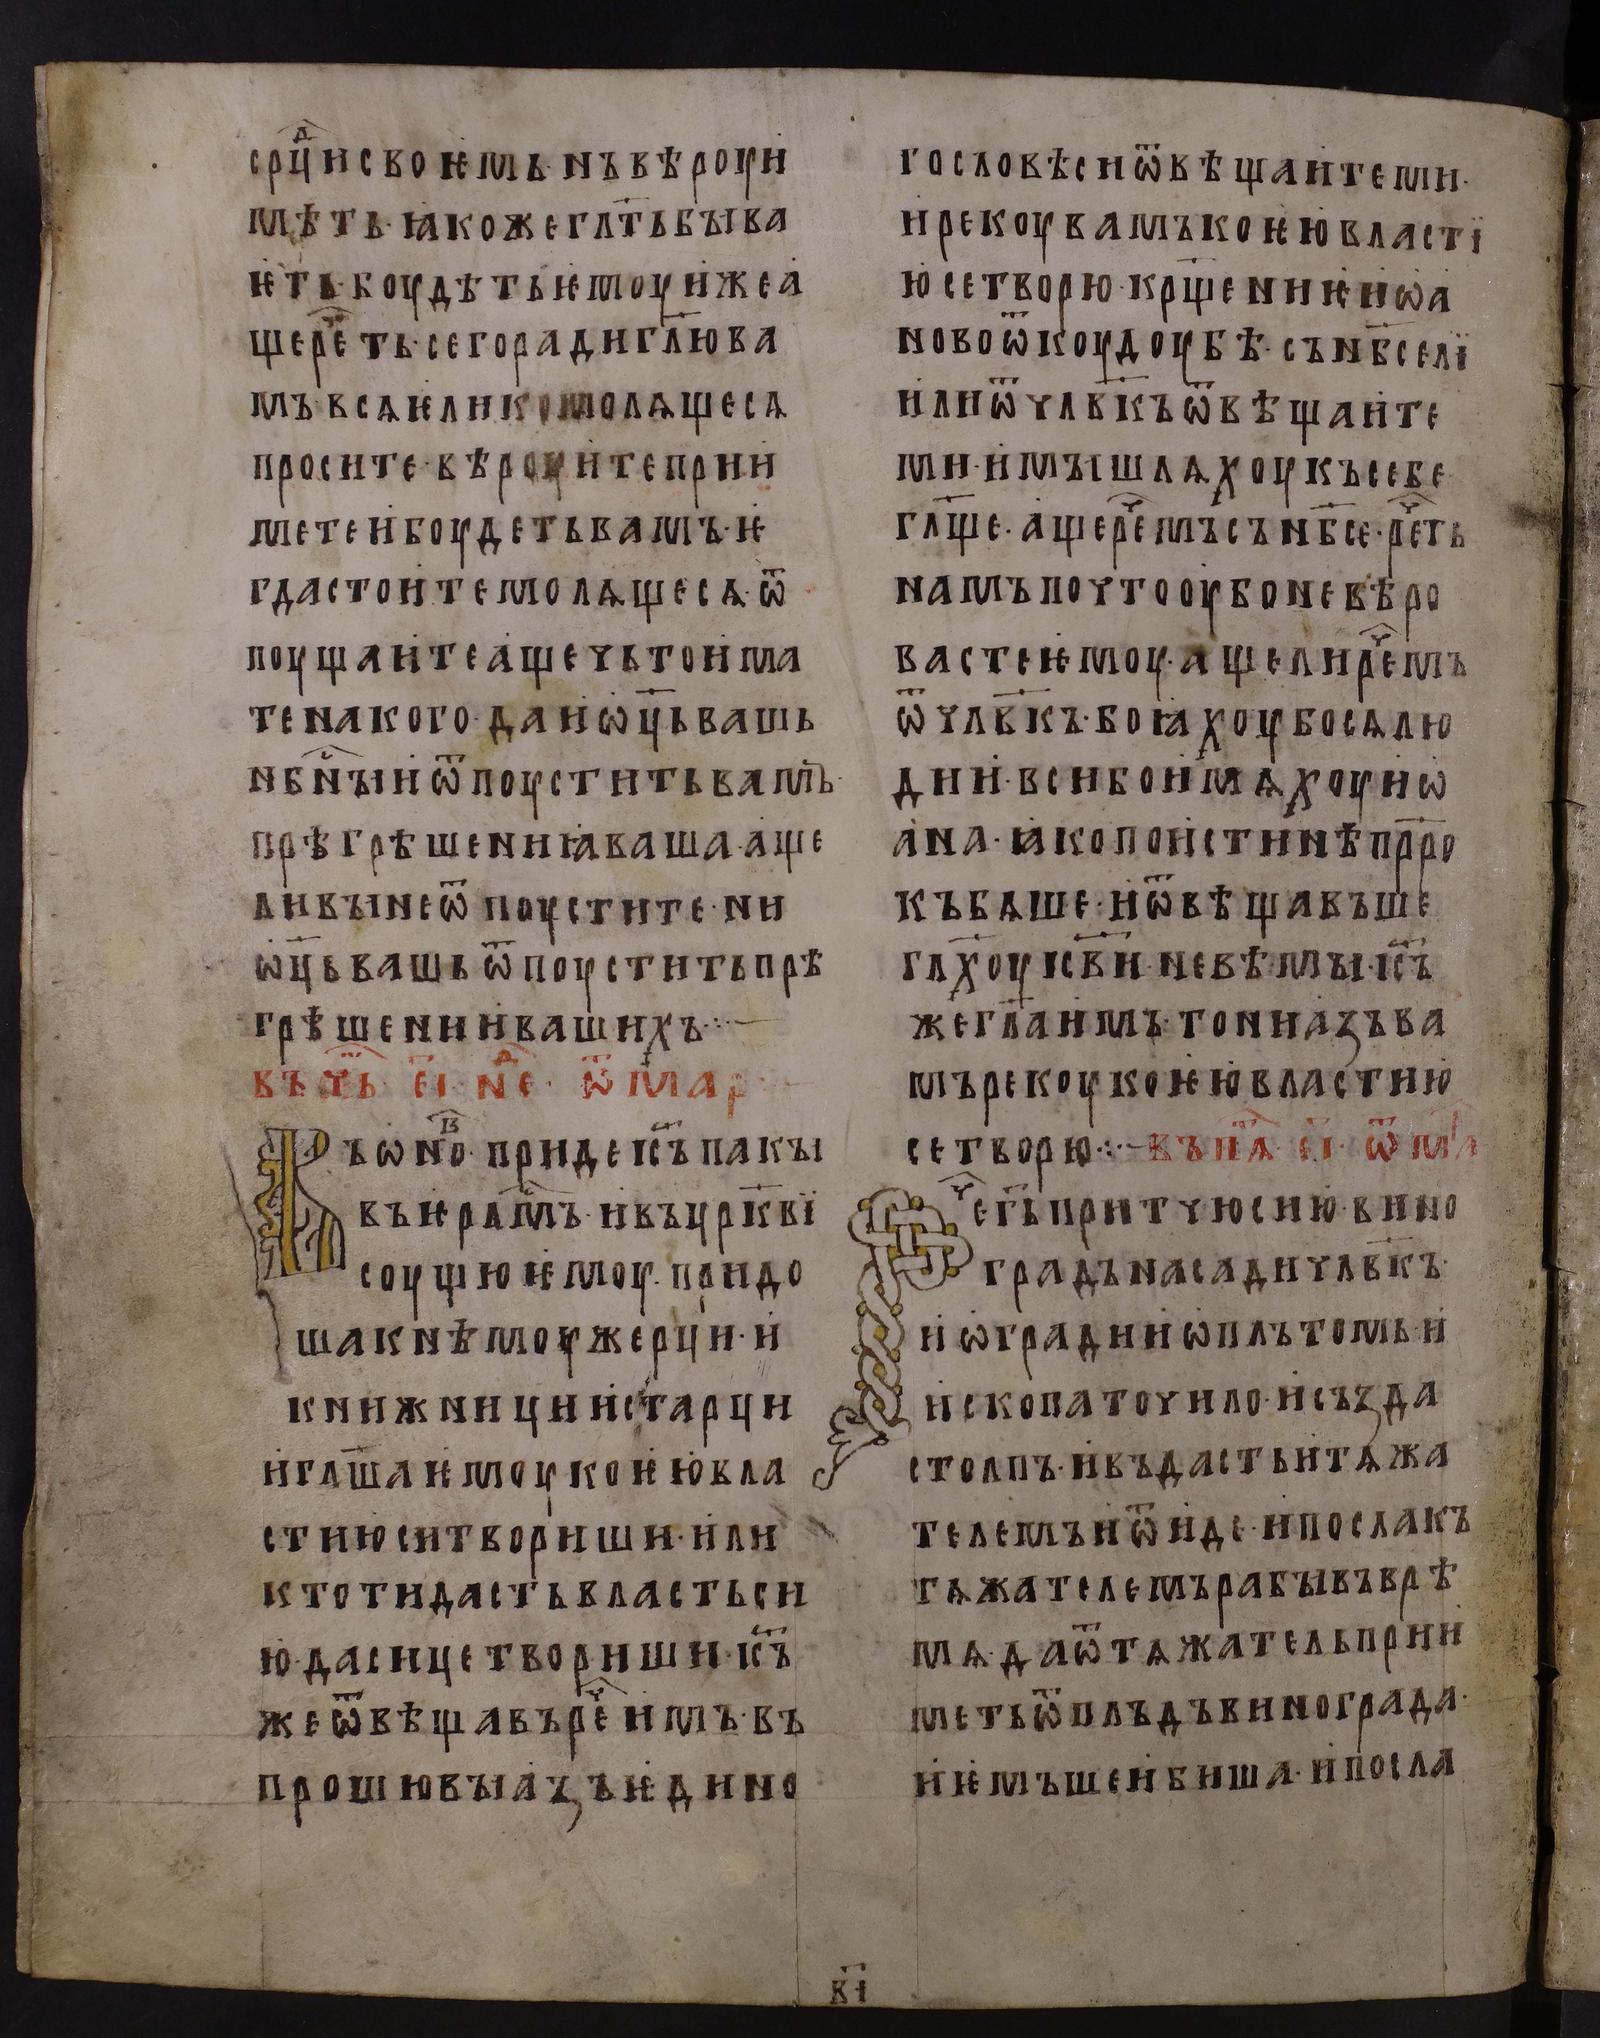 срⷣци своѥмь· нъ вѣроуи
мѣть· ꙗкоже гл҃ть быва
ѥть· боудѣть ѥмоу иже а
ще рⷱеть· сего ради гл҃ю ва
мъ всѧ ѥлико молѧще сѧ
просите· вѣроуите прии
мете и боудеть вамъ· ѥ
гда стоите молѧще сѧ· ѿ
поущаите аще чьто има
те на кого· да и ѡц҃ь вашь
нбⷭ҇ныи ѿпоустить вамъ·
прѣгрѣшениꙗ ваша· аще
ли вы не ѿпоустите· ни
ѡц҃ь вашь ѿпоустить прѣ
грѣшении вашихъ
въ чⷮь· е҃і· нⷣе· ѿ мар
Въ ѡⷡно· приде іс҃ъ пакы
въ ѥрⷭ҇лмъ· и въ цр҃кві
соущю ѥмоу· придо
ша к нѣмоу жерци· и
книжници и старци
и гл҃ша ѥмоу коѥю вла
стию си твориши· или
кто ти дасть власть си
ю· да сице твориши· іс҃ъ
же ѿвѣщавъ рⷱе имъ· въ
прошю вы азъ ѥдино
го словѣси ѿвѣщаите ми·
и рекоу вамъ коѥю власті
ю се творю· кр҃щениѥ иѡа
ново ѿкоудоу бѣ· съ нб҃се лї
или ѿ чл҃вкъ ѿвѣщаите
ми· и мышлѧхоу къ себе
гл҃ще· аще рⷱемъ съ нб҃се· рⷱеть
намъ почто оубо не вѣро
васте ѥмоу· аще ли рⷱемъ
ѿ чл҃вкъ· боꙗхоу бо сѧ лю
дии· вси бо имѧхоу иѡ
ана· ꙗко поистинѣ пр҃ро
къ бѧше· и ѿвѣщавъше
гл҃хоу іс҃ви· не вѣмы· іс҃ъ
же гл҃а имъ· то ни азъ ва
мъ рекоу коѥю властию
се творю въ пѧⷮ· е҃і· ѿ мⷬа
Рⷱе г҃ь притчю сию· вино
градъ насади чл҃вкъ·
и ѡгради и ѡплътомь· и
ископа точило· и създа
столпъ· и въдасть и тѧжа
телемъ и ѿиде· и посла къ
тѧжателемъ рабы въ врѣ
мѧ· да ѿ тѧжатель прии
меть ѿ плъдъ винограда·
и ѥмъше и биша· и посла
в҃і